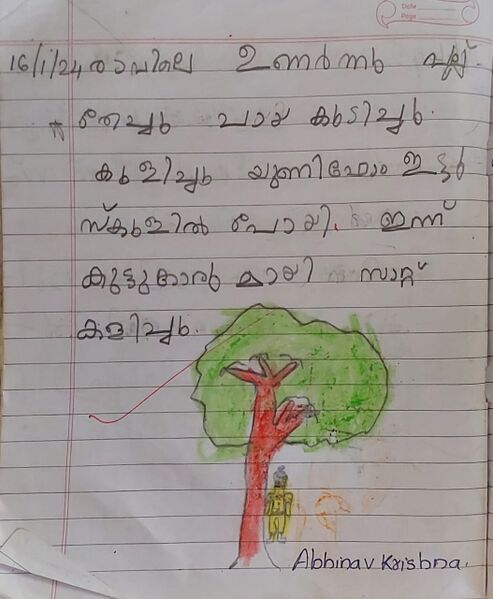 Date
Page
16/1/24 രാവിലെ ഉണർന്നു പല്ല്
തേച്ചു ചായ കുടിച്ചു.
കുളിച്ചു യുണിഫോം ഇട്ടു
സ്കൂളിൽ പോയി. ഇന്ന്
കൂട്ടുകാരു മായി സാറ്റ്
കളിച്ചു.
Abhinav Krishna.